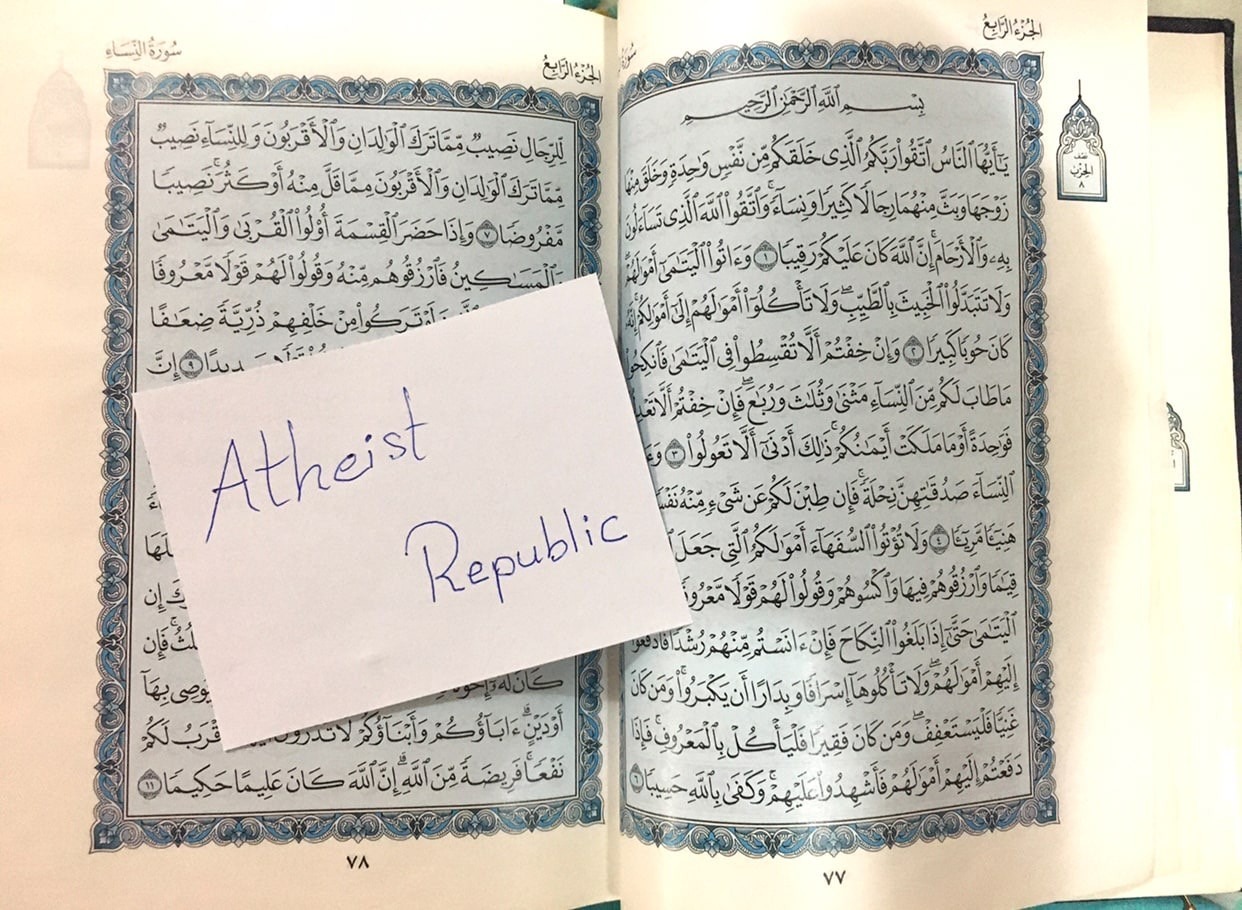 الجُزْءُ الرَّابِعُ
بِسْمِ ٱللَّهِ ٱلرَّحْمَٰنِ ٱلرَّحِيمِ
يَٰٓأَيُّهَا ٱلنَّاسُ ٱتَّقُوا۟ رَبَّكُمُ ٱلَّذِى خَلَقَكُم مِّن نَّفْسٍ وَٰحِدَةٍ وَخَلَقَ مِنْهَا
زَوْجَهَا وَبَثَّ مِنْهُمَا رِجَالًا كَثِيرًا وَنِسَآءً وَٱتَّقُوا۟ ٱللَّهَ ٱلَّذِى تَسَآءَلُونَ
بِهِۦ وَٱلْأَرْحَامَ إِنَّ ٱللَّهَ كَانَ عَلَيْكُمْ رَقِيبًا ١ وَءَاتُوا۟ ٱلْيَتَٰمَىٰٓ أَمْوَٰلَهُمْ
وَلَا تَتَبَدَّلُوا۟ ٱلْخَبِيثَ بِٱلطَّيِّبِ وَلَا تَأْكُلُوٓا۟ أَمْوَٰلَهُمْ إِلَىٰٓ أَمْوَٰلِكُمْ إِنَّهُۥ
كَانَ حُوبًا كَبِيرًا ٢ وَإِنْ خِفْتُمْ أَلَّا تُقْسِطُوا۟ فِى ٱلْيَتَٰمَىٰ فَٱنكِحُوا۟
مَا طَابَ لَكُم مِّنَ ٱلنِّسَآءِ مَثْنَىٰ وَثُلَٰثَ وَرُبَٰعَ فَإِنْ خِفْتُمْ أَلَّا تَعْدِلُوا۟
فَوَٰحِدَةً أَوْ مَا مَلَكَتْ أَيْمَٰنُكُمْ ذَٰلِكَ أَدْنَىٰٓ أَلَّا تَعُولُوا۟ ٣
ٱلنِّسَآءَ صَدُقَٰتِهِنَّ نِحْلَةً فَإِن طِبْنَ لَكُمْ عَن شَىْءٍ مِّنْهُ نَفْسًا
هَنِيٓـًٔا مَّرِيٓـًٔا ٤ وَلَا تُؤْتُوا۟ ٱلسُّفَهَآءَ أَمْوَٰلَكُمُ ٱلَّتِى جَعَلَ
قِيَٰمًا وَٱرْزُقُوهُمْ فِيهَا وَٱكْسُوهُمْ وَقُولُوا۟ لَهُمْ قَوْلًا مَّعْرُوفًا
ٱلْيَتَٰمَىٰ حَتَّىٰٓ إِذَا بَلَغُوا۟ ٱلنِّكَاحَ فَإِنْ ءَانَسْتُم مِّنْهُمْ رُشْدًا فَٱدْفَعُوٓا۟
إِلَيْهِمْ أَمْوَٰلَهُمْ وَلَا تَأْكُلُوهَآ إِسْرَافًا وَبِدَارًا أَن يَكْبَرُوا۟ وَمَن كَانَ
غَنِيًّا فَلْيَسْتَعْفِفْ وَمَن كَانَ فَقِيرًا فَلْيَأْكُلْ بِٱلْمَعْرُوفِ فَإِذَا
دَفَعْتُمْ إِلَيْهِمْ أَمْوَٰلَهُمْ فَأَشْهِدُوا۟ عَلَيْهِمْ وَكَفَىٰ بِٱللَّهِ حَسِيبًا ٦
٧٧
نصف
الحزب
٨
سُورَةُ النِّسَاءِ
الجُزْءُ الرَّابِعُ
لِّلرِّجَالِ نَصِيبٌ مِّمَّا تَرَكَ ٱلْوَٰلِدَانِ وَٱلْأَقْرَبُونَ وَلِلنِّسَآءِ نَصِيبٌ
مِّمَّا تَرَكَ ٱلْوَٰلِدَانِ وَٱلْأَقْرَبُونَ مِمَّا قَلَّ مِنْهُ أَوْ كَثُرَ نَصِيبًا
مَّفْرُوضًا ٧ وَإِذَا حَضَرَ ٱلْقِسْمَةَ أُو۟لُوا۟ ٱلْقُرْبَىٰ وَٱلْيَتَٰمَىٰ
وَٱلْمَسَٰكِينُ فَٱرْزُقُوهُم مِّنْهُ وَقُولُوا۟ لَهُمْ قَوْلًا مَّعْرُوفًا
لَوْ تَرَكُوا۟ مِنْ خَلْفِهِمْ ذُرِّيَّةً ضِعَٰفًا
سَدِيدًا ٩ إِنَّ
Atheist
Republic
إِن
فَإِن
كَانَ لَهُۥٓ إِخْوَةٌ يُوصِى بِهَآ
أَوْ دَيْنٍ ءَابَآؤُكُمْ وَأَبْنَآؤُكُمْ لَا تَدْرُونَ أَقْرَبُ لَكُمْ
نَفْعًا فَرِيضَةً مِّنَ ٱللَّهِ إِنَّ ٱللَّهَ كَانَ عَلِيمًا حَكِيمًا ١١
٧٨